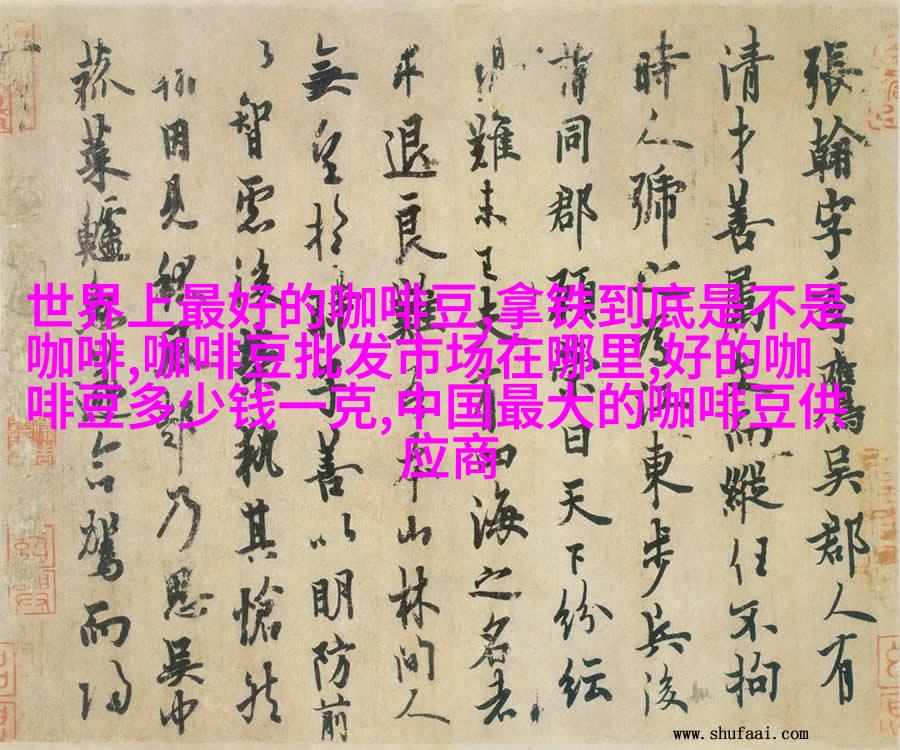 張翰字季鷹吳郡人有
清才善屬而縱任不拘
時人號為東步兵後
同郡顧榮曰天下紛紜
難未已夫有四海之名者
求退良難山林間人
無望於子善以明防前
智慮後榮執其愴然
因見乃思吳中
菰菜鱸命駕而歸
世界上最好的咖啡豆,拿铁到底是不是
咖啡,咖啡豆批发市场在哪里,好的咖
啡豆多少钱一克,中国最大的咖啡豆供
应商
www.shufaai.com